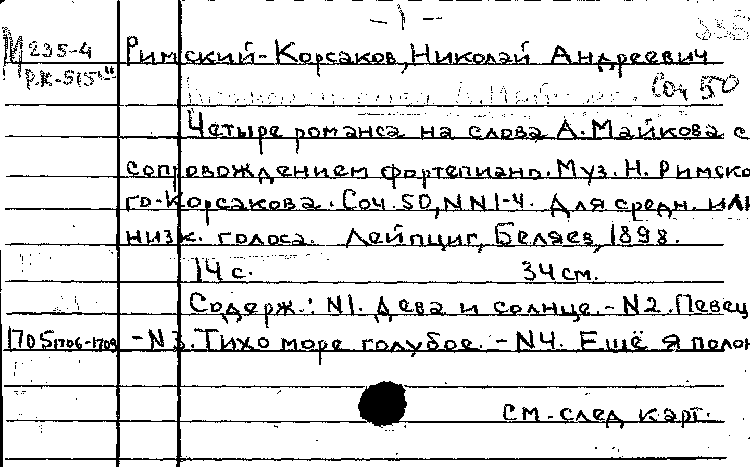 - 1 -
М 235-4 Римский-Корсаков, Николай Андреевич
Р.К-515"
Соч 50
Четыре романса на слова А. Майкова с
сопровождением фортепиано. Муз. Н. Римско
го-Корсакова. Соч. 50, NN1-4. Для средн. или
низк. голоса. Лейпциг, Беляев, 1898.
14 с. 34 см.
Содерж.: N1. Дева и солнце. - N2. Певец
1705 1706-1709 - N3. Тихо море голубое. - N4. Ещё я полон
См. след карт.